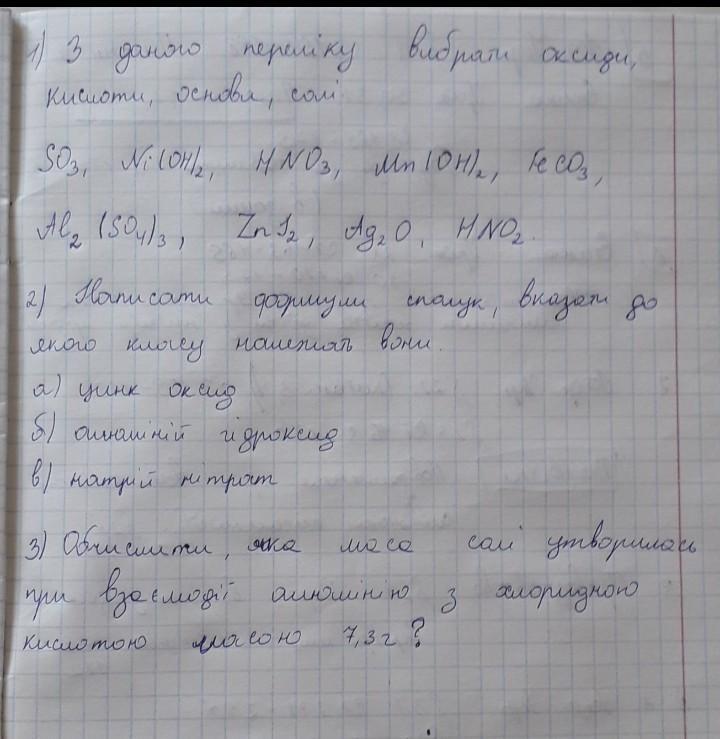 1) З даного переліку вибрати оксиди,
кислоти, основи, солі
SO₃, Ni(OH)₂, HNO₃, Mn(OH)₂, FeCO₃,
Al₂(SO₄)₃, ZnI₂, Ag₂O, HNO₂.
2) Написати формули сполук, вказати до
якого класу належать вони.
а) цинк оксид
б) алюміній гідроксид
в) натрій нітрат
3) Обчислити, яка маса солі утворилась
при взаємодії алюмінію з хлоридною
кислотою масою 7,3г?